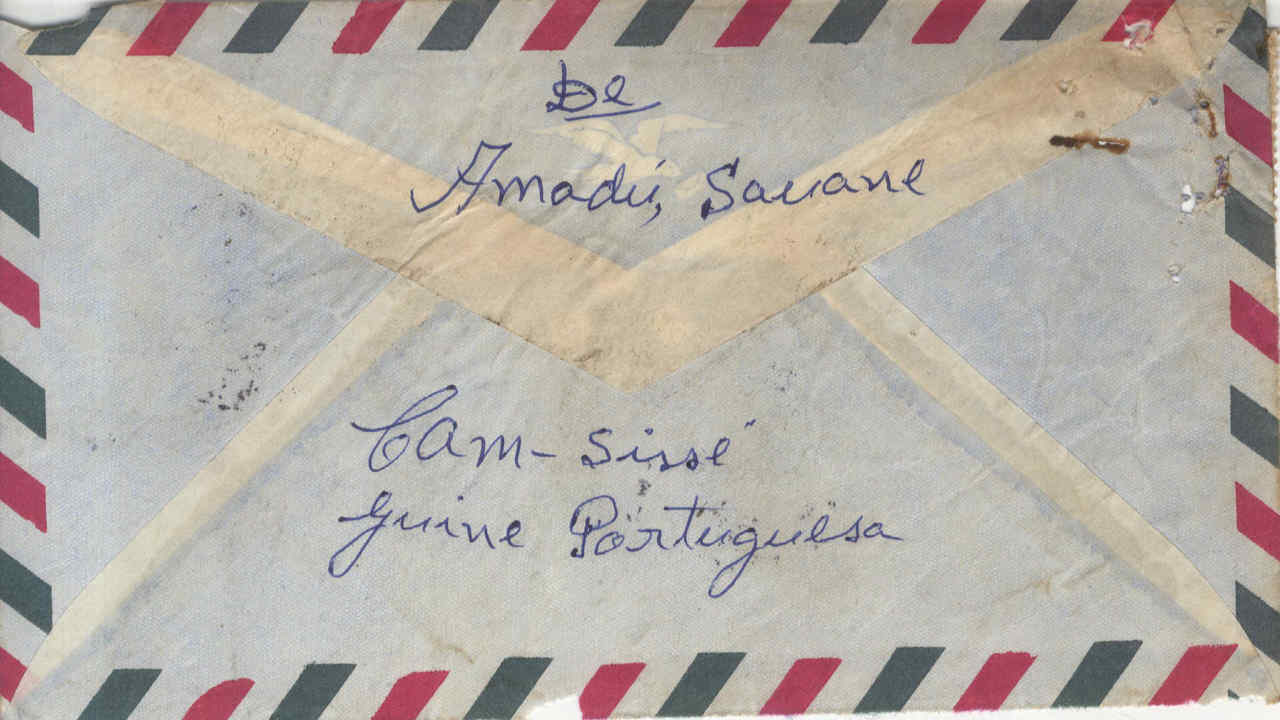 De
Amadú, Sauane
Cam-Sissé
Guine Portuguesa